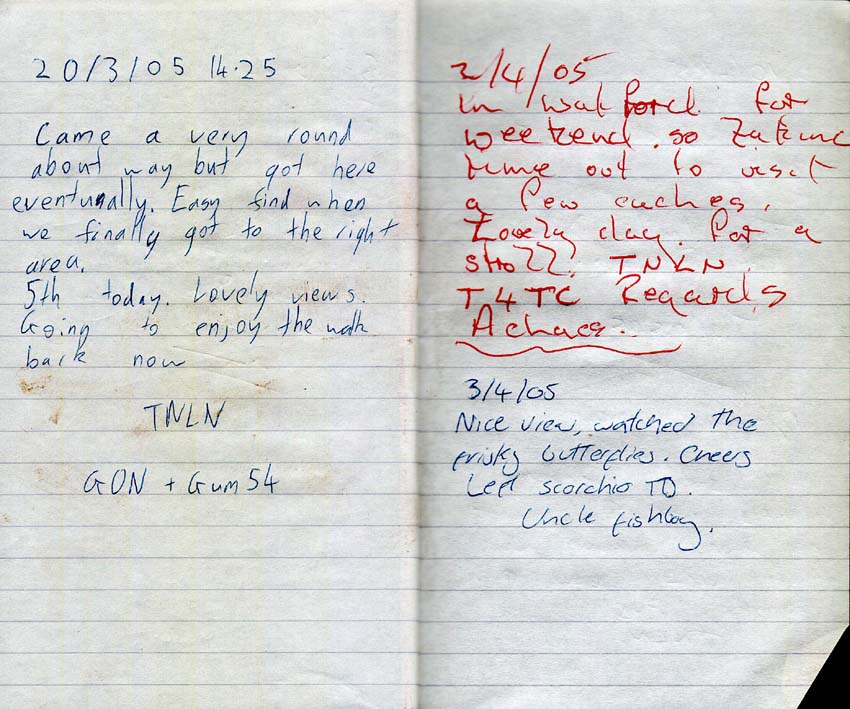 20/3/05 14.25
Came a very round
about way but got here
eventunally. Easy find when
we finally got to the right
area.
5th today. Lovely views.
Going to enjoy the walk
back now
TNLN
GON + Gum54
2/4/05
In watford for
weekend. so taking
time out to visit
a few caches.
Lovely day. for a
stroll. TNLN.
T4TC Regards
3/4/05
Nice view, watched the
frisky butterflies. Cheers
Left scorchio TB.
Uncle fishboy.